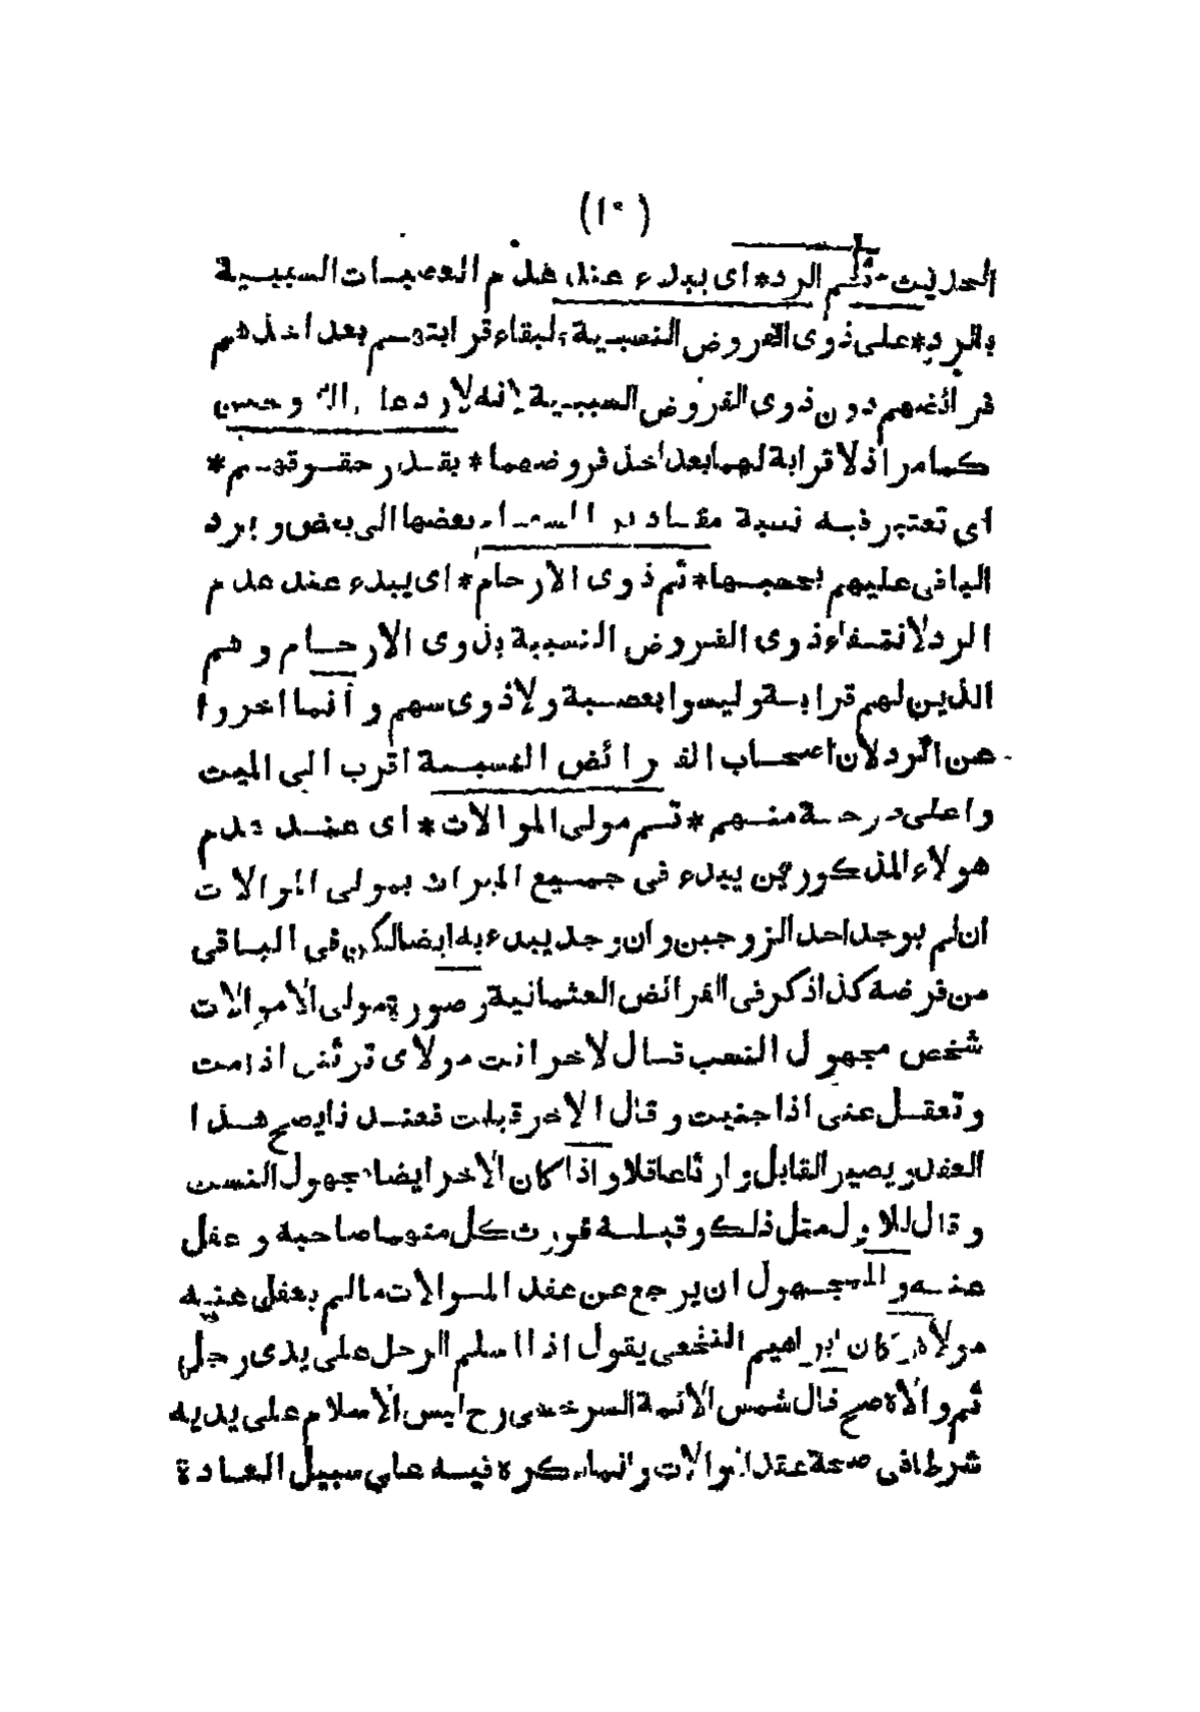 (١٠)
الحديث * ثم الرد * اى يبدء عند عدم العصبات السببية
بالرد * على ذوى الفروض النسبية * لبقاء قرابتهم بعد اخذهم
فرائضهم دون ذوى الفروض السببية لانه لا رد على الزوجين
كما مر اذ لا قرابة لهما بعد اخذ فروضهما * بقدر حقوقهم *
اى تعتبر فيه نسبة مقادير السهام بعضها الى بعض و يرد
الباقى عليهم بحسبها * ثم ذوى الارحام * اى يبدء عند عدم
الرد لانتفاء ذوى الفروض النسبية بذوى الارحام و هم
الذين لهم قرابة و ليسوا بعصبة و لا ذوى سهم و انما اخروا
عن الرد لان اصحاب الفرائض النسبية اقرب الى الميت
و اعلى درجة منهم * ثم مولى الموالات * اى عند عدم
هولاء المذكورين يبدء فى جميع الميراث بمولى الموالات
ان لم يوجد احد الزوجين و ان وجد يبدء به ايضا لكن فى الباقى
من فرضه كذا ذكر فى الفرائض العثمانية و صورة مولى الاموالات
شخص مجهول النسب قال لاخر انت مولاى ترثنى اذا مت
و تعقل عنى اذا جنيت و قال الاخر قبلت فعندنا يصح هذا
العقد و يصير القابل وارثا عاقلا و اذا كان الاخر ايضا مجهول النسب
و قال للاول مثل ذلك و قبله فورث كل منهما صاحبه و عقل
عنه و للمجهول ان يرجع عن عقد الموالات ما لم يعقل عنه
مولاه و كان ابراهيم النخعى يقول اذا اسلم الرجل على يدى رجل
ثم والاه صح قال شمس الائمة السرخسى رح ليس الاسلام على يديه
شرطا فى صحة عقد الموالات و انما ذكره فيه على سبيل العادة